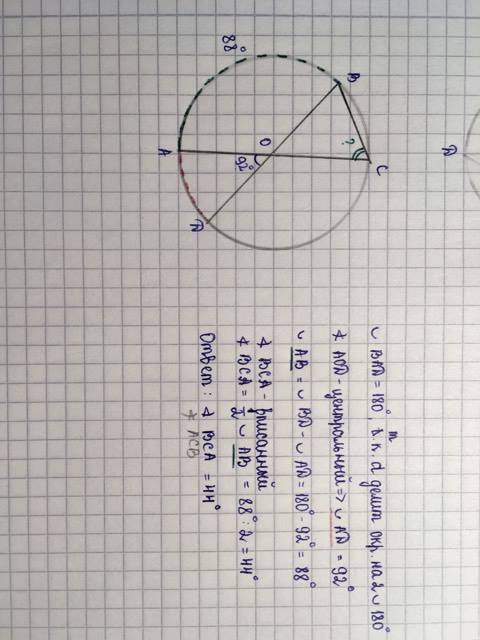 88°
B
A
O
92°
?
C
D
D
◡ BAD = 180°, т.к. d делит окр. на 2 ◡ 180°
∢ AOD - центральный => ◡ AD = 92°
◡ AB = ◡ BD - ◡ AD = 180° - 92° = 88°
∢ BCA - вписанный
∢ BCA = 1/2 ◡ AB = 88° : 2 = 44°
Ответ: ∢ BCA = 44°
∢ ACB